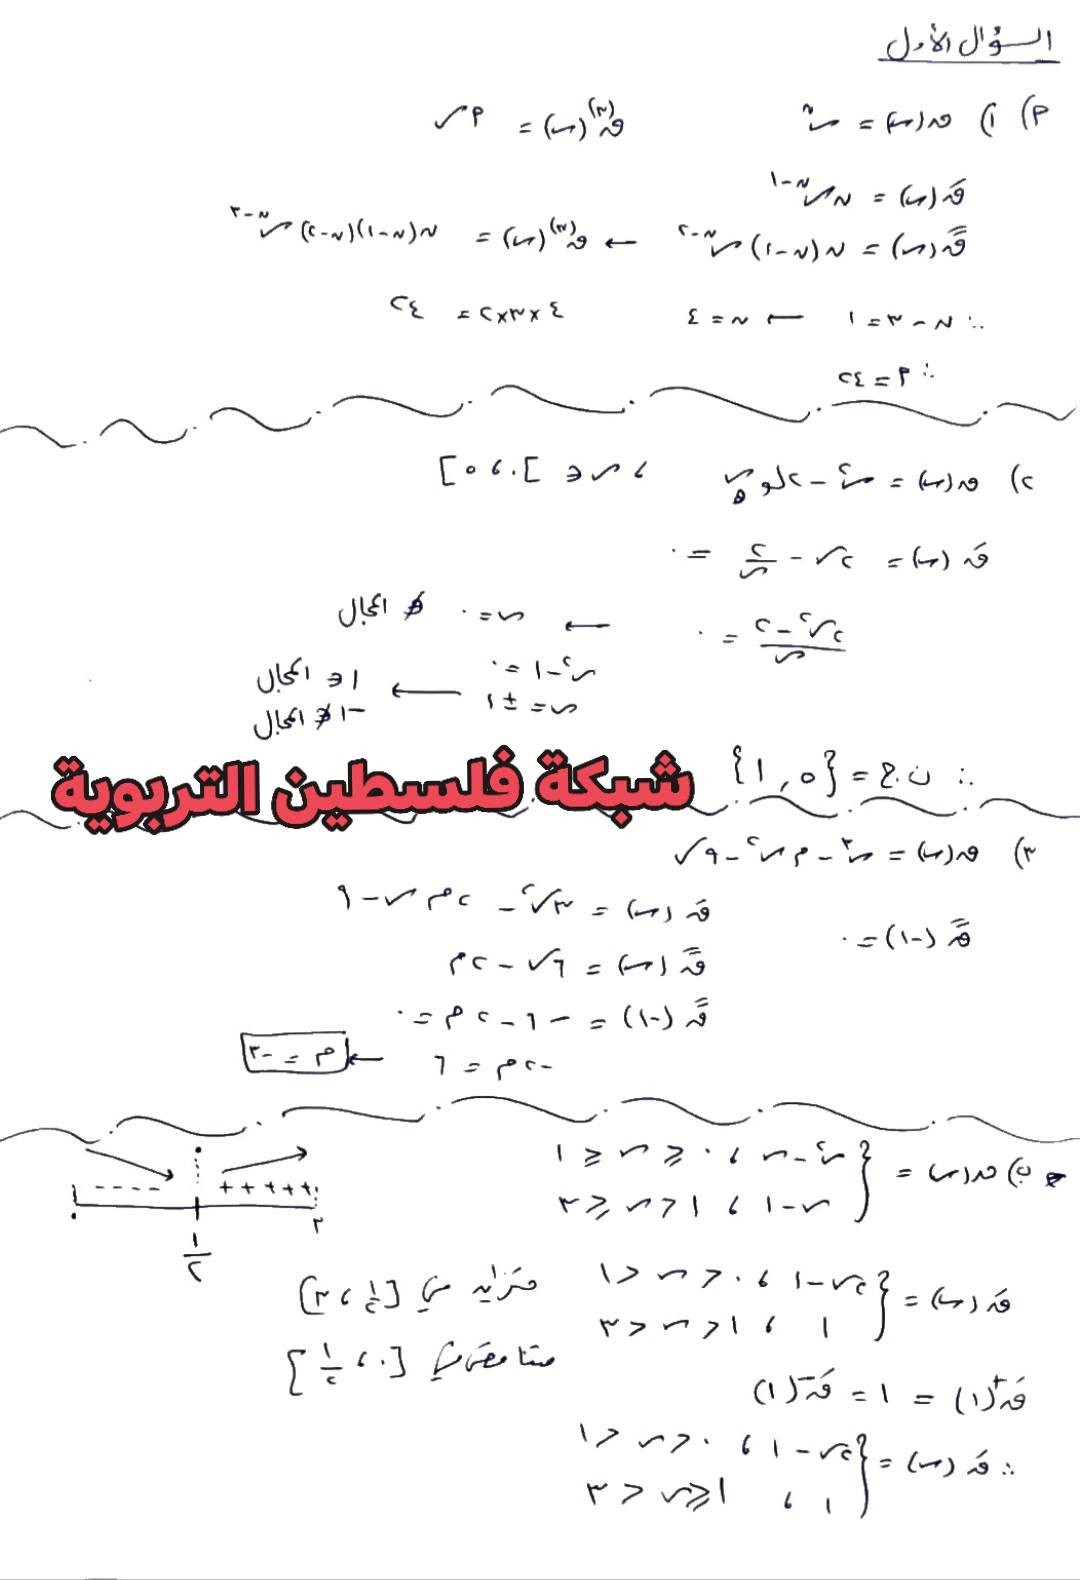 السؤال الأول
أ) ١) ق(س) = س^ن ق^(٣)(س) = أ س
قَ(س) = ن س^(ن-١)
قً(س) = ن(ن-١) س^(ن-٢) ← ق^(٣)(س) = ن(ن-١)(ن-٢) س^(ن-٣)
∴ ن - ٣ = ١ ← ن = ٤ ٤×٣×٢ = ٢٤
∴ أ = ٢٤
٢) ق(س) = س^٢ - ٢لو_هـ س ، س ∈ ]٠ ، ٥]
قَ(س) = ٢س - ٢/س = ٠
(٢س^٢ - ٢)/س = ٠ ← س = ٠ ∉ المجال
س^٢ - ١ = ٠
س = ±١ ← ١ ∈ المجال
-١ ∉ المجال
∴ ن.ح = {٥ , ١}
شبكة فلسطين التربوية
٣) ق(س) = س^٣ - م س^٢ - ٩س
قَ(س) = ٣س^٢ - ٢م س - ٩
قً(-١) = ٠
قً(س) = ٦س - ٢م
قً(-١) = -٦ - ٢م = ٠
-٢م = ٦ ← م = -٣
ب) ق(س) = { س^٢ - س ، ٠ ≤ س ≤ ١
س - ١ ، ١ < س ≤ ٣
- - - - + + + + +
٠ ١/٢ ٣
قَ(س) = { ٢س - ١ ، ٠ < س < ١
١ ، ١ < س < ٣
متزايد في [١/٢ ، ٣]
متناقص في [٠ ، ١/٢]
قَ^+(١) = ١ = قَ^-(١)
∴ قَ(س) = { ٢س - ١ ، ٠ < س < ١
١ ، ١ ≤ س < ٣